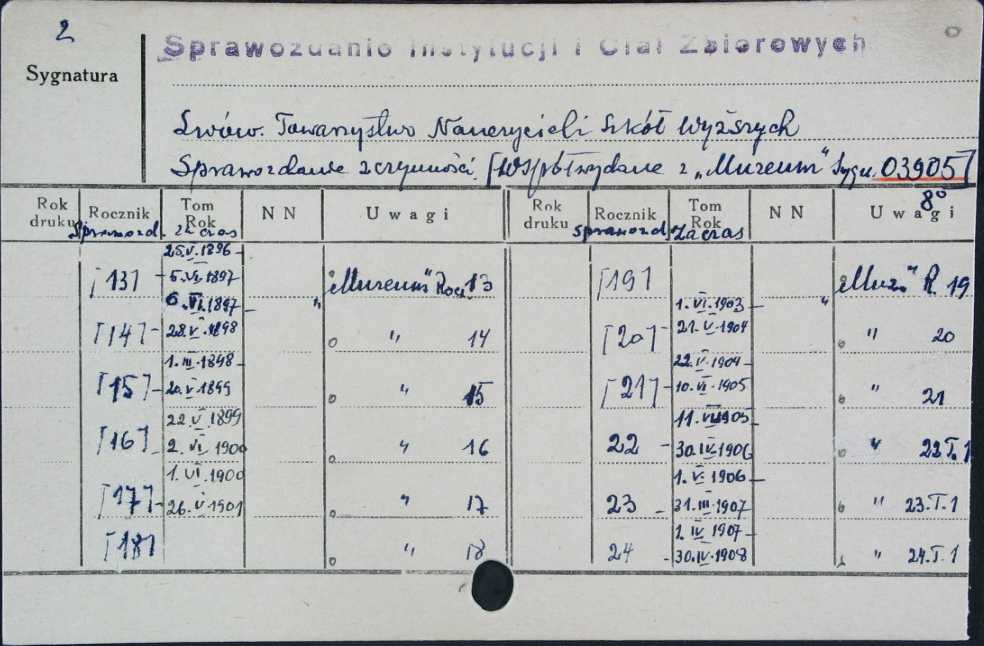 2
Sprawozdanie Instytucji i Ciał Zbiorowych
Sygnatura
Lwów. Towarzystwo Nauczycieli Szkół Wyższych
Sprawozdanie z czynności. [Współwydane z „Muzeum" Sygn. 03905]
8°
Rok druku Rocznik Tom Rok NN Uwagi Rok druku Rocznik Tom Rok NN Uwagi
Sprawozd. za czas Sprawozd. za czas
25.V.1896
[13] - 5.VI.1897 „Muzeum" Rocz. 13 [19] „Muz" R. 19
6.VI.1897 - 1.VI.1903 -
[14] - 28.V.1898 " 14 [20] - 21.V.1904 " 20
1.III.1898 - 22.V.1904 -
[15] - 20.V.1899 " 15 [21] - 10.VI.1905 " 21
22.V.1899 11.VI.1905
[16] - 2.VI.1900 " 16 22 - 30.IV.1906 " 22 T.1
1.VI.1900 1.V.1906 -
[17] - 26.V.1901 " 17 23 - 31.III.1907 " 23.T.1
1.IV.1907 -
[18] " 18 24 - 30.IV.1908 " 24.T.1